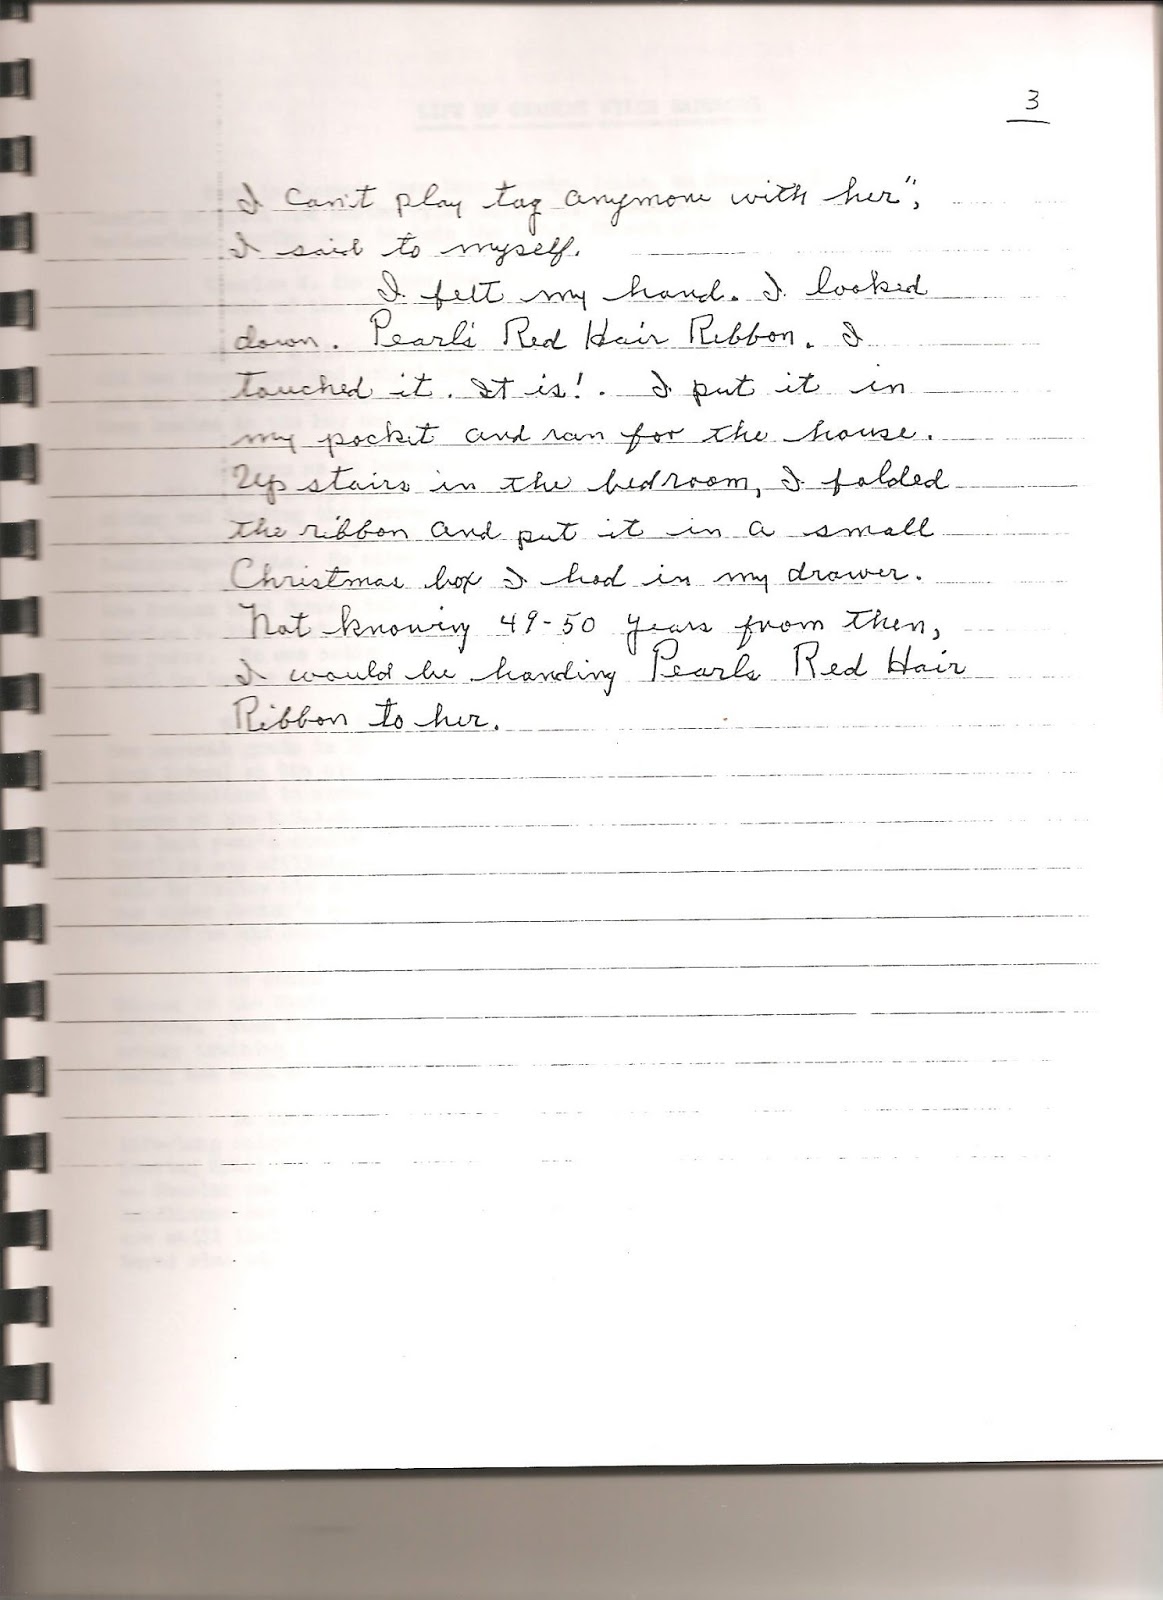 3
I can't play tag anymore with her",
I said to myself.
I felt my hand. I looked
down. Pearl's Red Hair Ribbon. I
touched it. It is!. I put it in
my pocket and ran for the house.
Up stairs in the bedroom, I folded
the ribbon and put it in a small
Christmas box I had in my drawer.
Not knowing 49-50 years from then,
I would be handing Pearls Red Hair
Ribbon to her.